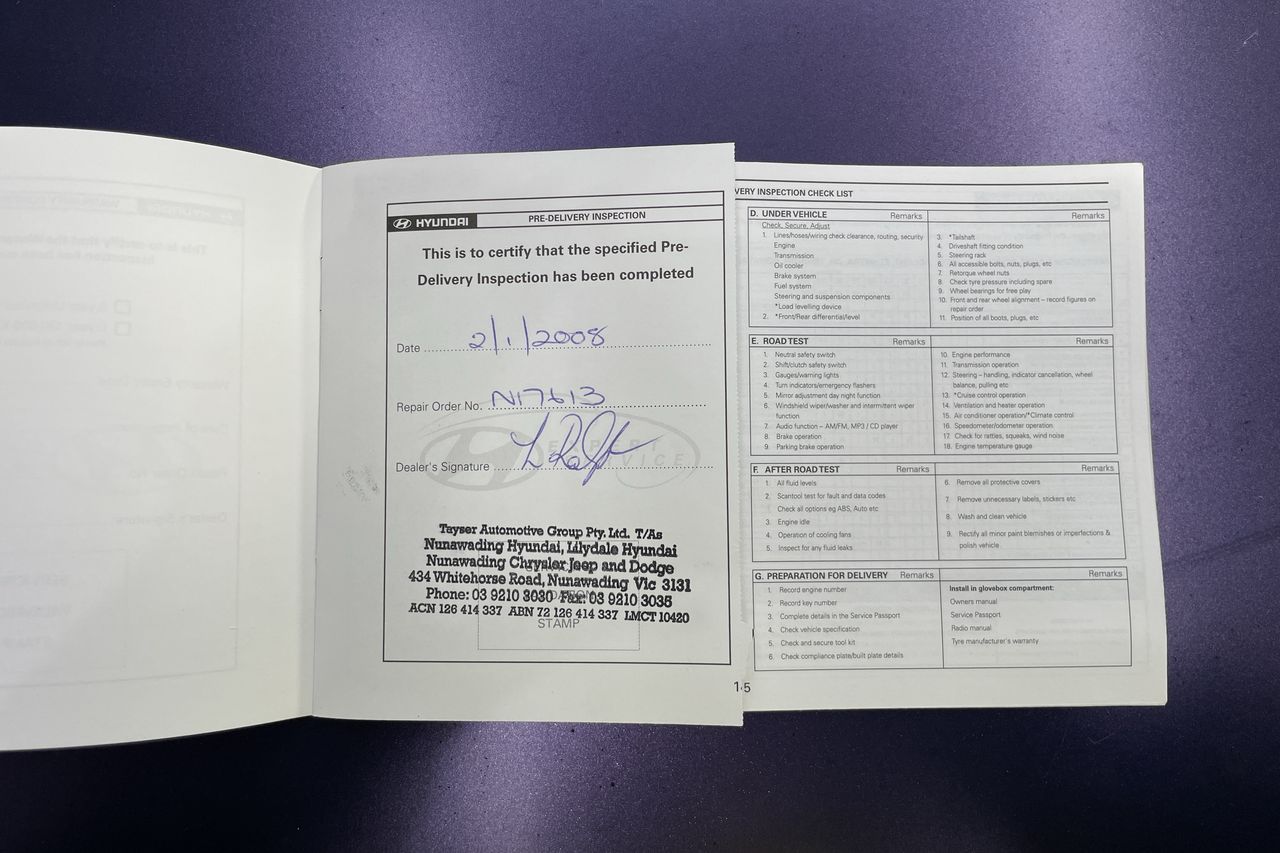 HYUNDAI
PRE-DELIVERY INSPECTION
This is to certify that the specified Pre-
Delivery Inspection has been completed
Date 2/1/2008
Repair Order No. N17613
Dealer's Signature
Tayser Automotive Group Pty. Ltd. T/As
Nunawading Hyundai, Lilydale Hyundai
Nunawading Chrysler Jeep and Dodge
434 Whitehorse Road, Nunawading Vic 3131
Phone: 03 9210 3030 Fax: 03 9210 3035
ACN 126 414 337 ABN 72 126 414 337 LMCT 10420
STAMP
1-5
VERY INSPECTION CHECK LIST
D. UNDER VEHICLE Remarks
Check, Secure, Adjust
1. Lines/hoses/wiring check clearance, routing, security
Engine
Transmission
Oil cooler
Brake system
Fuel system
Steering and suspension components
*Load levelling device
2. *Front/Rear differential/level
Remarks
3. *Tailshaft
4. Driveshaft fitting condition
5. Steering rack
6. All accessible bolts, nuts, plugs, etc
7. Retorque wheel nuts
8. Check tyre pressure including spare
9. Wheel bearings for free play
10. Front and rear wheel alignment – record figures on
repair order
11. Position of all boots, plugs, etc
E. ROAD TEST Remarks
1. Neutral safety switch
2. Shift/clutch safety switch
3. Gauges/warning lights
4. Turn indicators/emergency flashers
5. Mirror adjustment day night function
6. Windshield wiper/washer and intermittent wiper
function
7. Audio function – AM/FM, MP3 / CD player
8. Brake operation
9. Parking brake operation
Remarks
10. Engine performance
11. Transmission operation
12. Steering – handling, indicator cancellation, wheel
balance, pulling etc
13. *Cruise control operation
14. Ventilation and heater operation
15. Air conditioner operation/*Climate control
16. Speedometer/odometer operation
17. Check for rattles, squeaks, wind noise
18. Engine temperature gauge
F. AFTER ROAD TEST Remarks
1. All fluid levels
2. Scantool test for fault and data codes
Check all options eg ABS, Auto etc
3. Engine idle
4. Operation of cooling fans
5. Inspect for any fluid leaks
Remarks
6. Remove all protective covers
7. Remove unnecessary labels, stickers etc
8. Wash and clean vehicle
9. Rectify all minor paint blemishes or imperfections &
polish vehicle
G. PREPARATION FOR DELIVERY Remarks
1. Record engine number
2. Record key number
3. Complete details in the Service Passport
4. Check vehicle specification
5. Check and secure tool kit
6. Check compliance plate/built plate details
Remarks
Install in glovebox compartment:
Owners manual
Service Passport
Radio manual
Tyre manufacturer's warranty